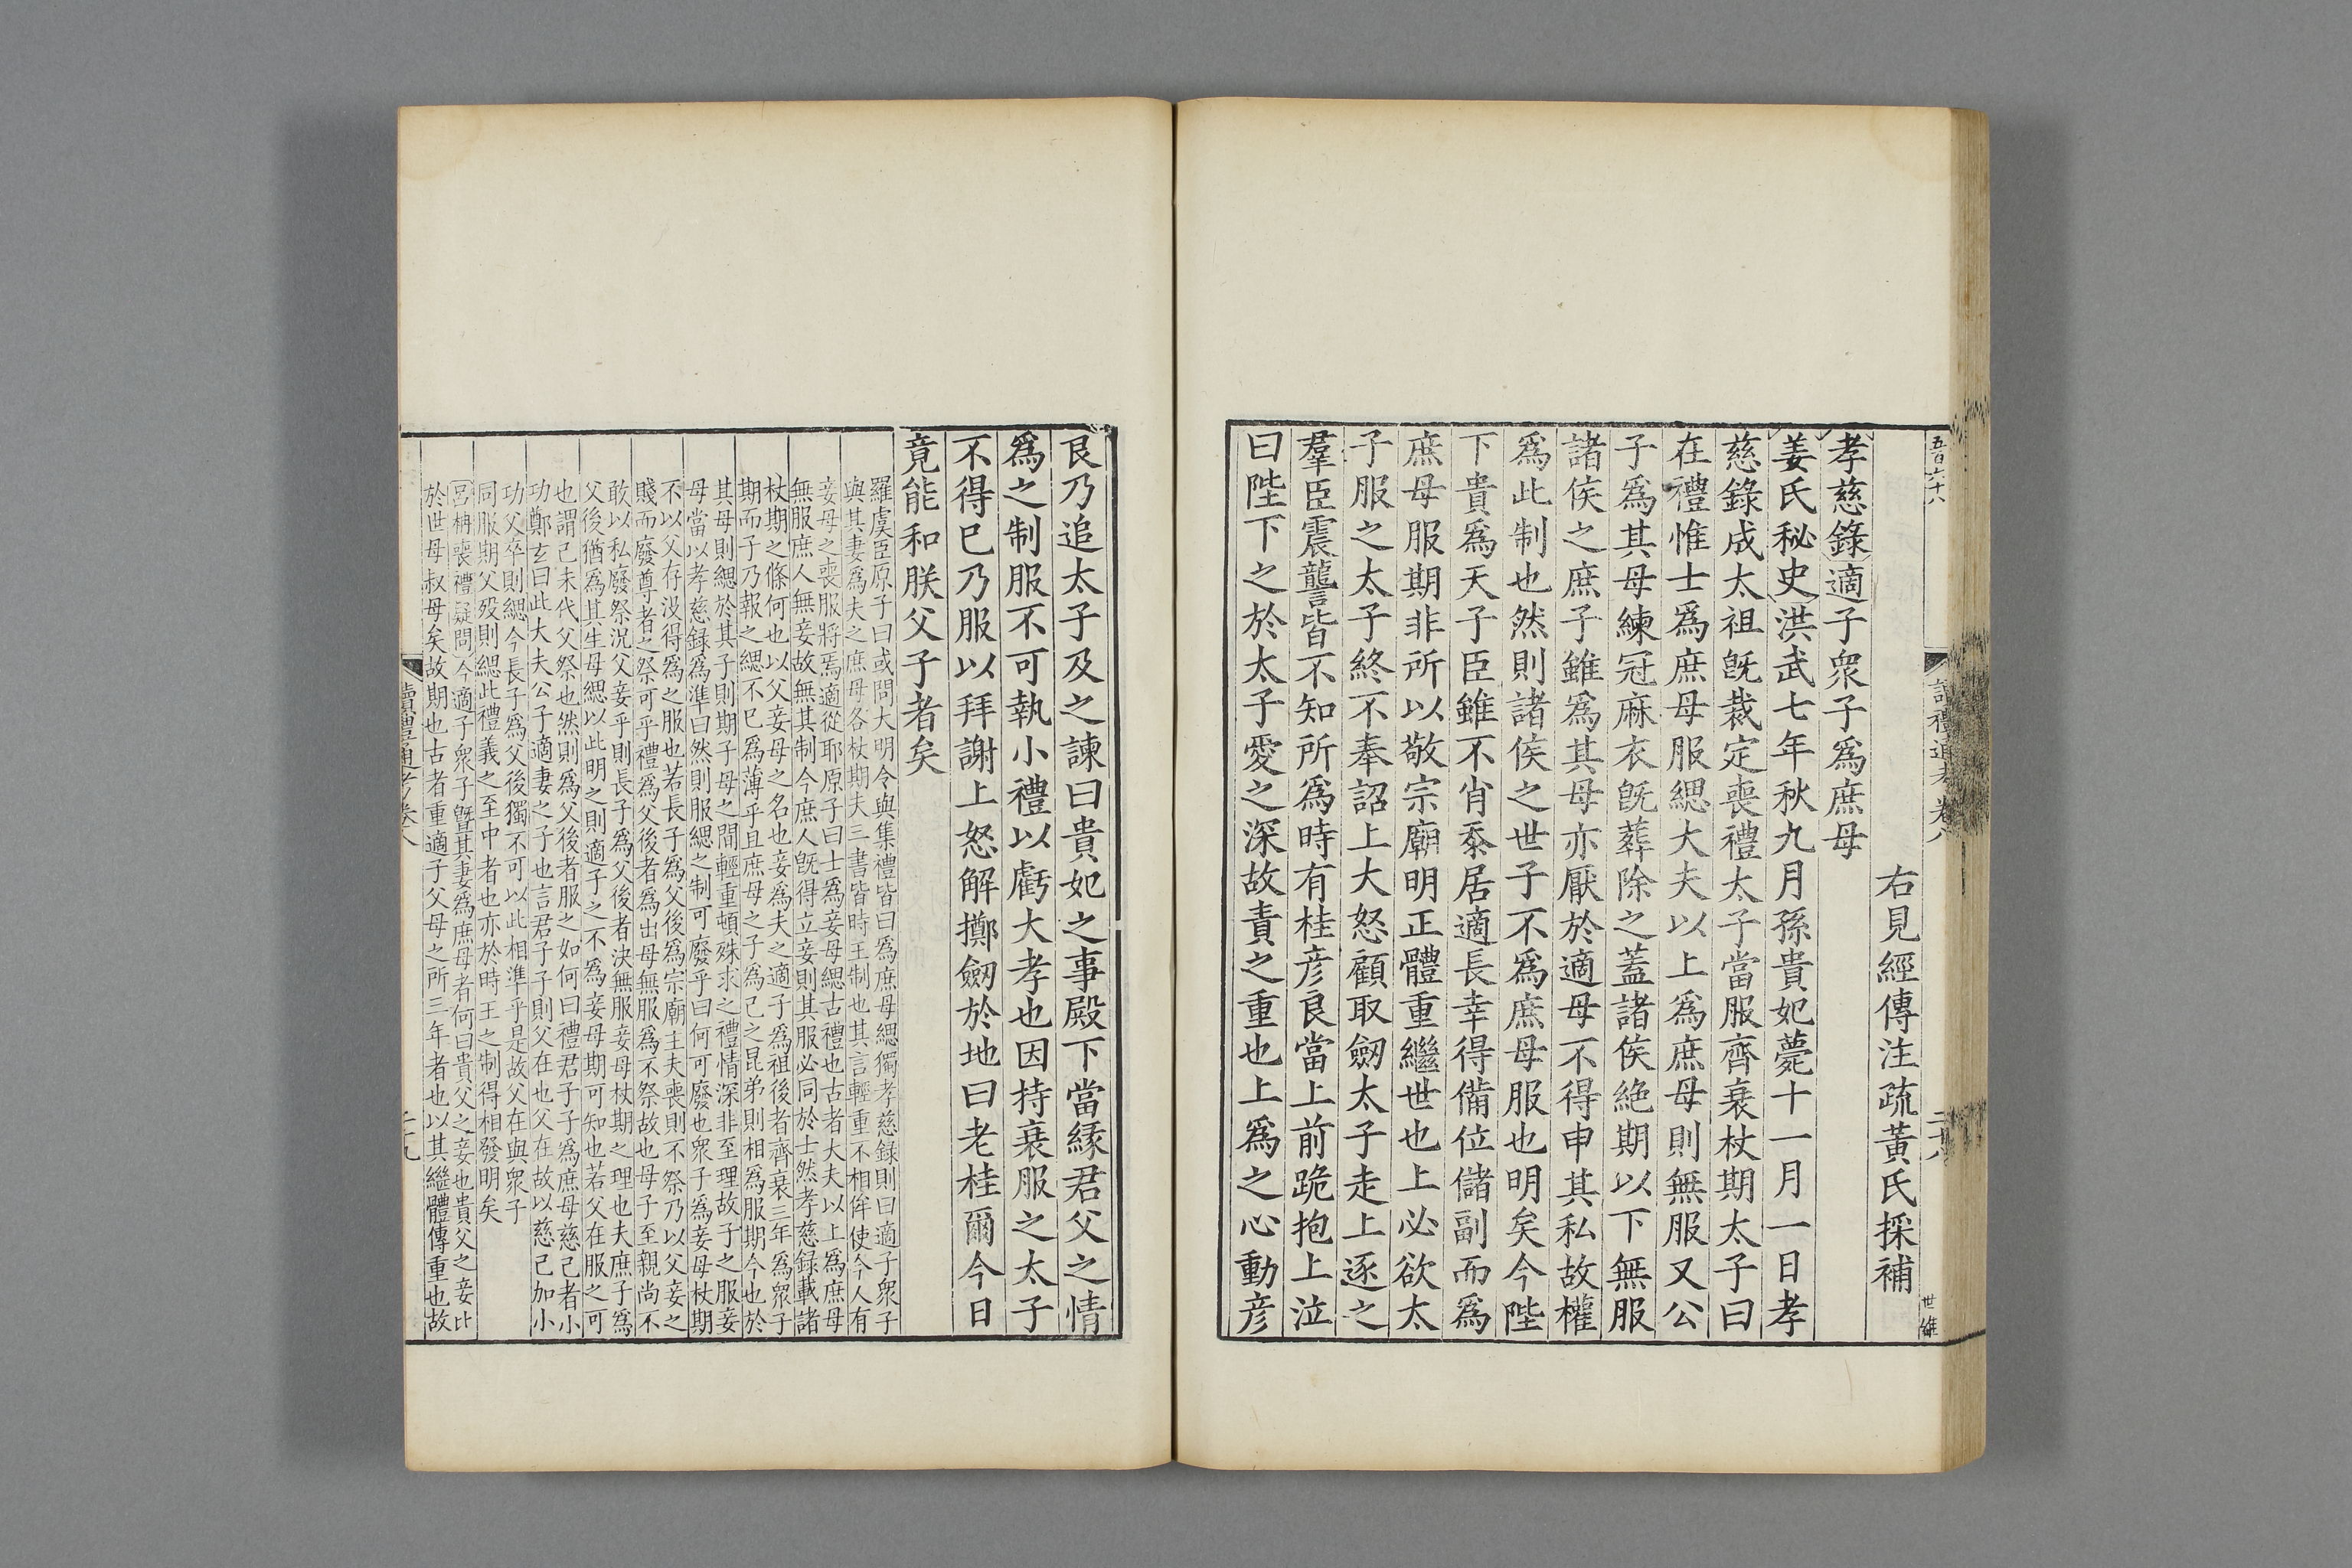 五百六十八
讀禮通考卷八
二十八
世維
右見經傳注疏黃氏採補
孝慈錄適子衆子爲庶母
姜氏秘史洪武七年秋九月孫貴妃薨十一月一日孝
慈錄成太祖旣裁定喪禮太子當服齊衰杖期太子曰
在禮惟士爲庶母服緦大夫以上爲庶母則無服又公
子爲其母練冠麻衣旣葬除之蓋諸侯絕期以下無服
諸侯之庶子雖爲其母亦厭於適母不得申其私故權
爲此制也然則諸侯之世子不爲庶母服也明矣今陛
下貴爲天子臣雖不肖忝居適長幸得備位儲副而爲
庶母服期非所以敬宗廟明正體重繼世也上必欲太
子服之太子終不奉詔上大怒顧取劒太子走上逐之
羣臣震讋皆不知所爲時有桂彦良當上前跪抱上泣
曰陛下之於太子愛之深故責之重也上爲之心動彦
良乃追太子及之諫曰貴妃之事殿下當緣君父之情
爲之制服不可執小禮以虧大孝也因持衰服之太子
不得已乃服以拜謝上怒解擲劒於地曰老桂爾今日
竟能和朕父子者矣
羅虞臣原子曰或問大明令與集禮皆曰爲庶母緦獨孝慈録則曰適子衆子
與其妻爲夫之庶母各杖期夫三書皆時王制也其言輕重不相侔使今人有
妾母之喪服將焉適從耶原子曰士爲妾母緦古禮也古者大夫以上爲庶母
無服庶人無妾故無其制今庶人旣得立妾則其服必同於士然孝慈録載諸
杖期之條何也以父妾母之名也妾爲夫之適子爲祖後者齊衰三年爲眾子
期而子乃報之緦不已爲薄乎且庶母之子爲己之昆弟則相爲服期今也於
其母則緦於其子則期子母之間輕重頓殊求之禮情深非至理故子之服妾
母當以孝慈録爲準曰然則服緦之制可廢乎曰何可廢也衆子爲妾母杖期
不以父存没得爲之服也若長子爲父後爲宗廟主夫喪則不祭乃以父妾之
賤而廢尊者之祭可乎禮爲父後者爲出母無服爲不祭故也母子至親尚不
敢以私廢祭況父妾乎則長子爲父後者決無服妾母杖期之理也夫庶子爲
父後猶爲其生母緦以此明之則適子之不爲妾母期可知也若父在服之可
也謂己未代父祭也然則爲父後者服之如何曰禮君子子爲庶母慈己者小
功鄭玄曰此大夫公子適妻之子也言君子子則父在也父在故以慈己加小
功父卒則緦今長子爲父後獨不可以此相準乎是故父在與衆子
同服期父殁則緦此禮義之至中者也亦於時王之制得相發明矣
呂柟喪禮疑問今適子衆子暨其妻爲庶母者何曰貴父之妾也貴父之妾比
於世母叔母矣故期也古者重適子父母之所三年者也以其繼體傳重也故
讀禮通考卷八
二十九